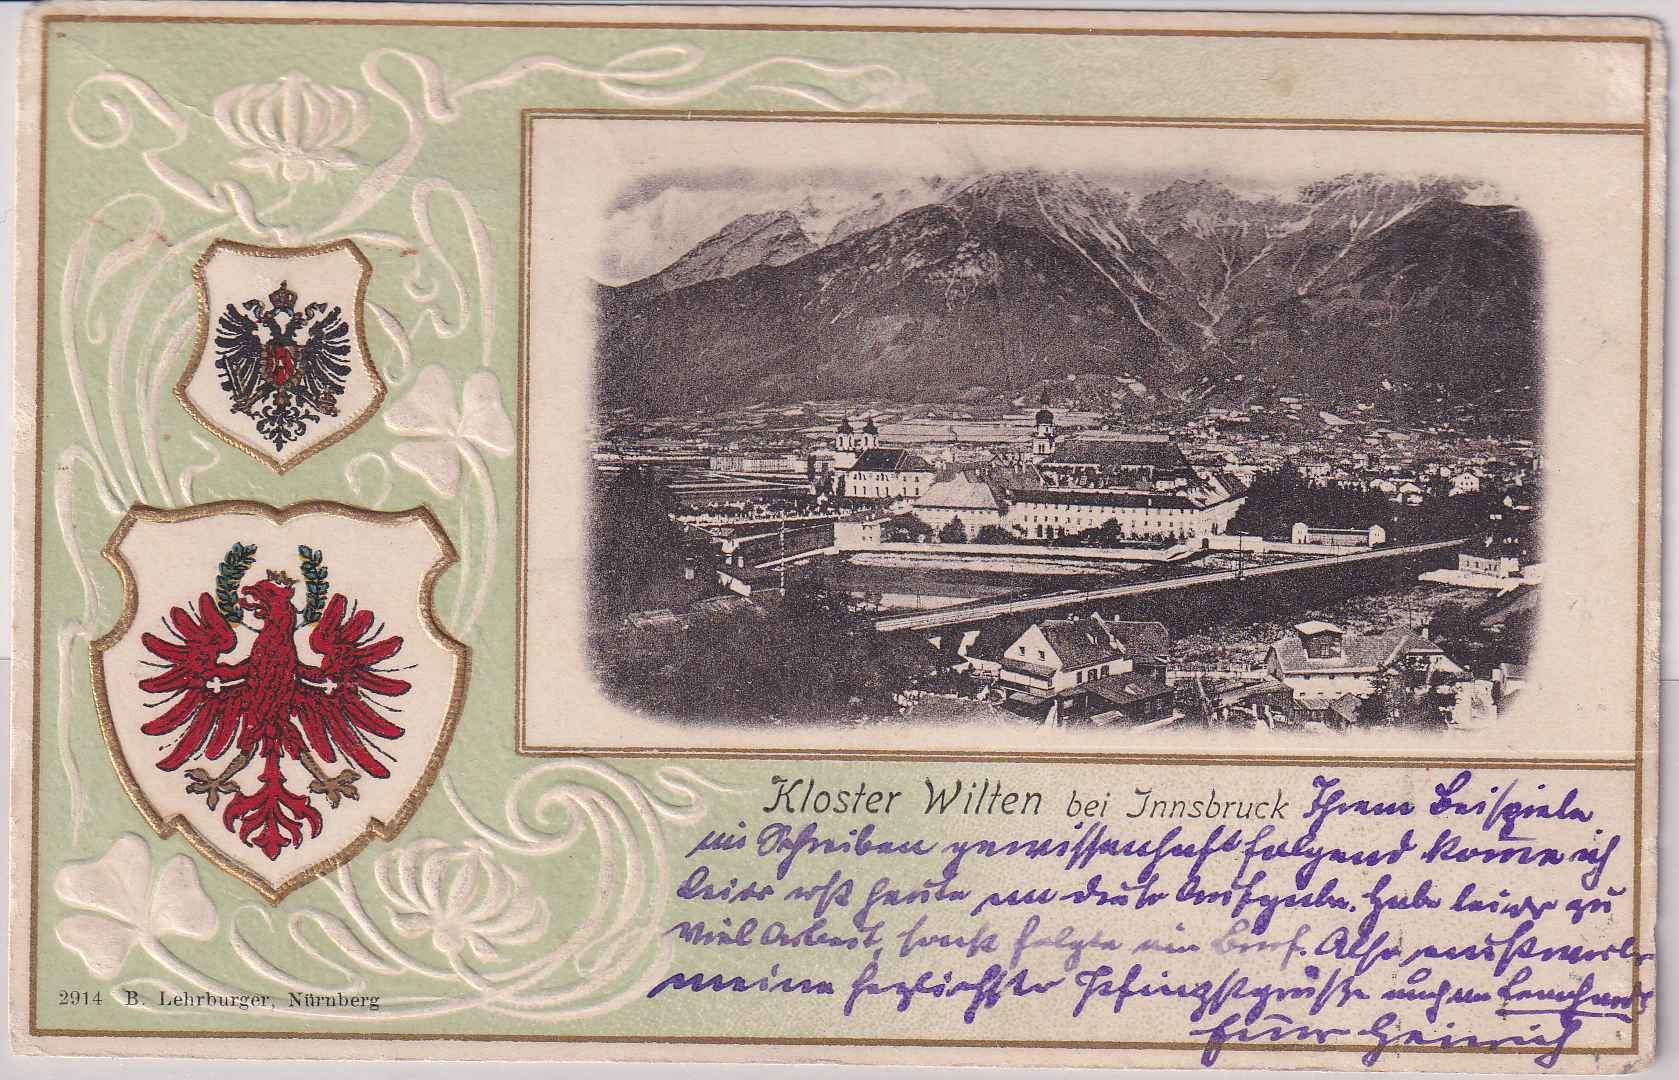 Kloster Wilten bei Innsbruck Ihrem Beispiele
im Schreiben gewissenhaft folgend komme ich
leider erst heute an diese Aufgabe. Habe leider zu
viel Arbeit, sonst folgte ein Brief. Also
meine herzlichsten Pfingstgrüße auch an
Euer Heinrich
2914 B. Lehrburger, Nürnberg